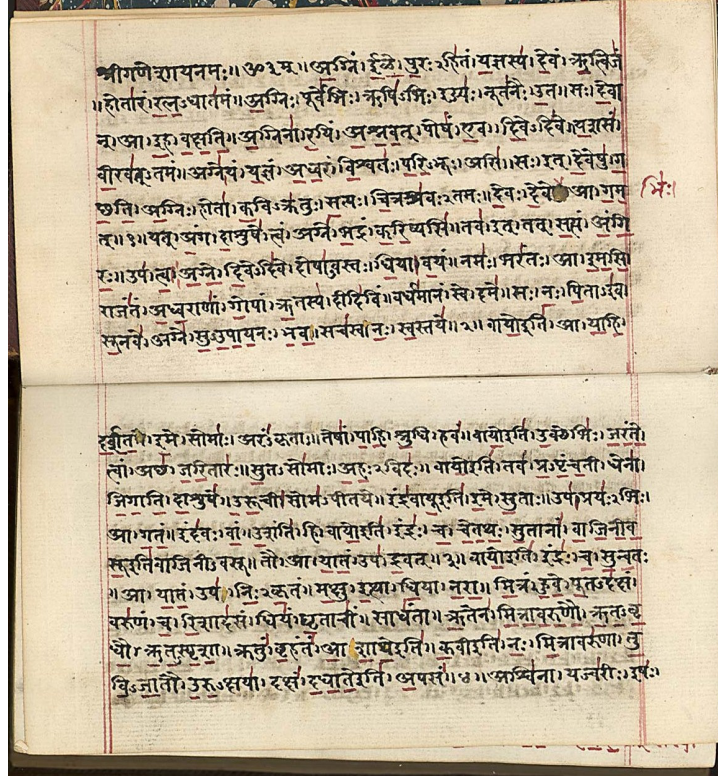 श्रीगणेशायनमः॥ॐ३म्॥अग्निं।ईळे।पुरःऽहितं।यज्ञस्य।देवं।ऋत्विजं
॥होतारं।रत्नऽधातमं॥अग्निः।पूर्वेभिः।ऋषिऽभिः।ईड्यः।नूतनैः।उत॥सः।देवा
न्।आ।इह।वक्षति॥अग्निना।रयिं।अश्नवत्।पोषं।एव।दिवेऽदिवे॥यशसं
वीरवत्ऽतमं॥अग्नेयं।यज्ञं।अध्वरं।विश्वतः।परिऽभूः।असि॥सः।इत्।देवेषु।ग
च्छति।अग्निः।होता।कविऽक्रतुः।सत्यः।चित्रश्रवःऽतमः॥देवः।देवे।आ।गम
भिः।
त्॥१॥यत्।अंग।दाशुषे।त्वं।अग्ने।भद्रं।करिष्यसि॥तव।इत्।तत्।सत्यं।अंगि
रः॥उप।त्वा।अग्ने।दिवेऽदिवे।दोषाऽवस्तः।धिया।वयं॥नमः।भरंतः।आ।इमसि
राजंतं।अध्वराणां।गोपां।ऋतस्य।दीदिविं॥वर्धमानं।स्वे।दमे॥सः।नः।पिताऽइव
सूनवे।अग्ने।सुऽउपायनः।भव॥सचस्व।नः।स्वस्तये॥२॥वायोइति।आ।याहि।
दर्शत।इमे।सोमाः।अरंऽकृताः॥तेषां।पाहि।श्रुधि।हवं॥वायोइति।उक्थेभिः।जरंते।
त्वां।अच्छ।जरितारः॥सुतऽसोमाः।अहःऽविदः॥वायोइति।तव।प्रऽपृंचती।धेना।
जिगाति।दाशुषे॥उरूची।सोमऽपीतये॥इंद्रवायूइति।इमे।सुताः॥उप।प्रयःऽभिः।
आ।गतं॥इंदवः।वां।उशंति।हि॥वायोइति।इंद्रः।च।चेतथः।सुतानां।वाजिनीव
सूइतिवाजिनीऽवसू॥तौ।आ।यातं।उप।द्रवत्॥३॥वायोइति।इंद्रः।च।सुन्वतः
॥आ।यातं।उप।निःऽकृतं॥मक्षु।इत्था।धिया।नरा॥मित्रं।हुवे।पूतऽदक्षं।
वरुणं।च।रिशादसं॥धियं।घृताचीं।साधंता॥ऋतेन।मित्रावरुणौ।ऋतऽवृ
धौ।ऋतऽस्पृशा॥क्रतुं।बृहंतं।आशाथेइति॥कवीइति।नः।मित्रावरुणा।तु
विऽजातौ।उरुऽक्षया॥दक्षं।दधातेइति।अपसं॥४॥अश्विना।यज्वरीः।इषः।